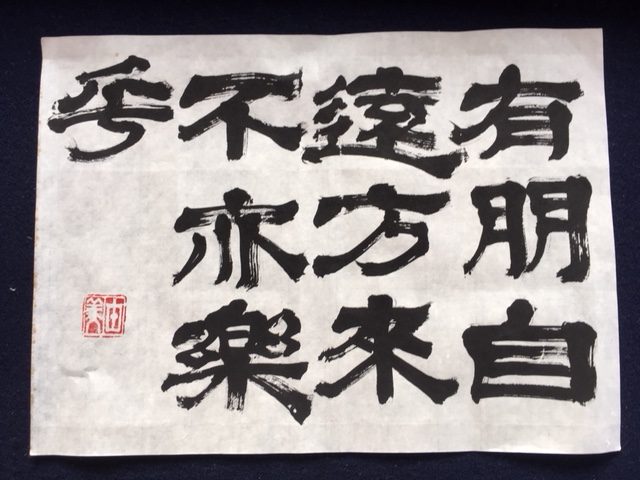 有朋自
遠方来
不亦樂
乎